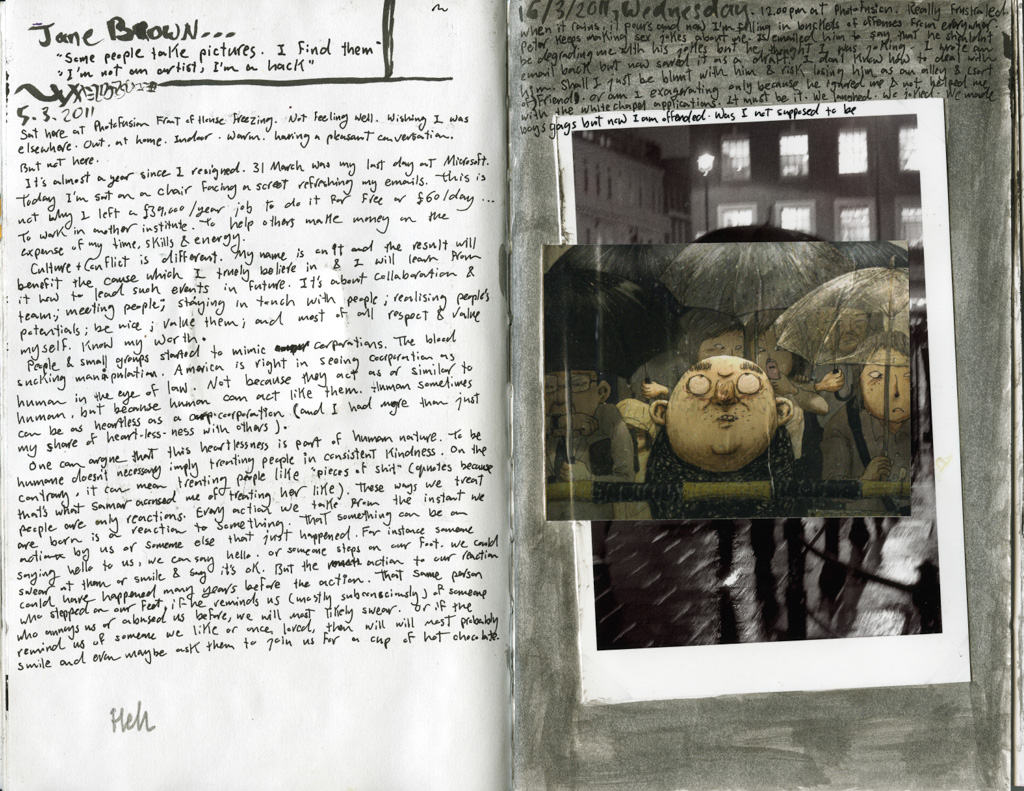 Jane Brown...
"Some people take pictures. I find them"
"I'm not an artist, I'm a hack"
5.3.2011
Sat here at Photofusion Front of House. Freezing. Not feeling well. Wishing I was
elsewhere. Out. at home. Indoor. Warm. having a pleasant conversation.
But not here.
It's almost a year since I resigned. 31 March was my last day at Microsoft.
Today I'm sat on a chair facing a screet refreshing my emails. This is
not why I left a £39,000/year job to do it for free or £60/day...
To work in another institute. To help others make money on the
expense of my time, skills & energy.
Culture + Conflict is different. My name is on it and the result will
benefit the cause which I truely believe in & I will learn from
it how to lead such events in future. It's about collaboration &
team; meeting people; staying in touch with people; realising people's
potentials; be nice; value them; and most of all respect & value
myself. Know my worth.
People & small groups started to mimic corporations. The blood
sucking manipulation. America is right in seeing coorporation as
human in the eye of law. Not because they act as or similar to
human, but because human can act like them. Human sometimes
can be as heartless as a corporation (and I had more than just
my share of heart-less-ness with others).
One can argue that this heartlessness is part of human nature. To be
humane doesn't necessary imply treating people in consistent kindness. On the
contrary, it can mean treating people like "pieces of shit" (quotes because
that's what Samar accused me of treating her like). These ways we treat
people are only reactions. Every action we take from the instant we
are born is a reaction to something. That something can be an
action by us or someone else that just happened. For instance someone
saying hello to us, we can say hello. or someone steps on our foot. we could
swear at them or smile & say it's ok. But the action to our reaction
could have happened many years before the action. That same person
who stepped on our feet, if he reminds us (mostly subconsciously) of someone
who annoys us or abused us before, we will most likely swear. or if the
remind us of someone we like or once loved, then will will most probably
smile and even maybe ask them to join us for a cup of hot chocolate.
Heh
16/3/2011, Wednesday. 12.00pm at Photofusion. Really frustrated
when it rains, it pours and now I'm falling in buckets of offenses from everywhere.
Peter keeps making sex jokes about me. I emailed him to say that he shouldn't
be degrading me with his jokes but he thought I was joking. I wrote an
email back but now saved it as a draft. I don't know how to deal with
him. Shall I just be blunt with him & risk losing him as an alley & (sort
of) friend. or am I exagerating only because he ignored me & not helped me
with the whitechapel applications. It must be it. We laughed. We joked. We made
gags but now I am offended. Was I not supposed to be